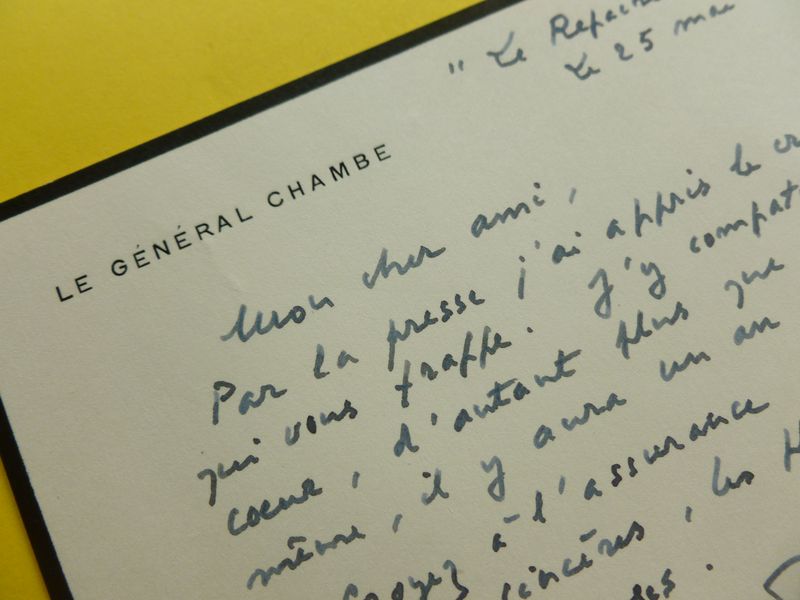 " Le Repaire
Le 25 mai
LE GÉNÉRAL CHAMBE
Mon cher ami,
Par la presse j'ai appris le
qui vous frappe. J'y compat
coeur, d'autant plus que
même, il y aura un an
Croyez à l'assurance
sincères, les